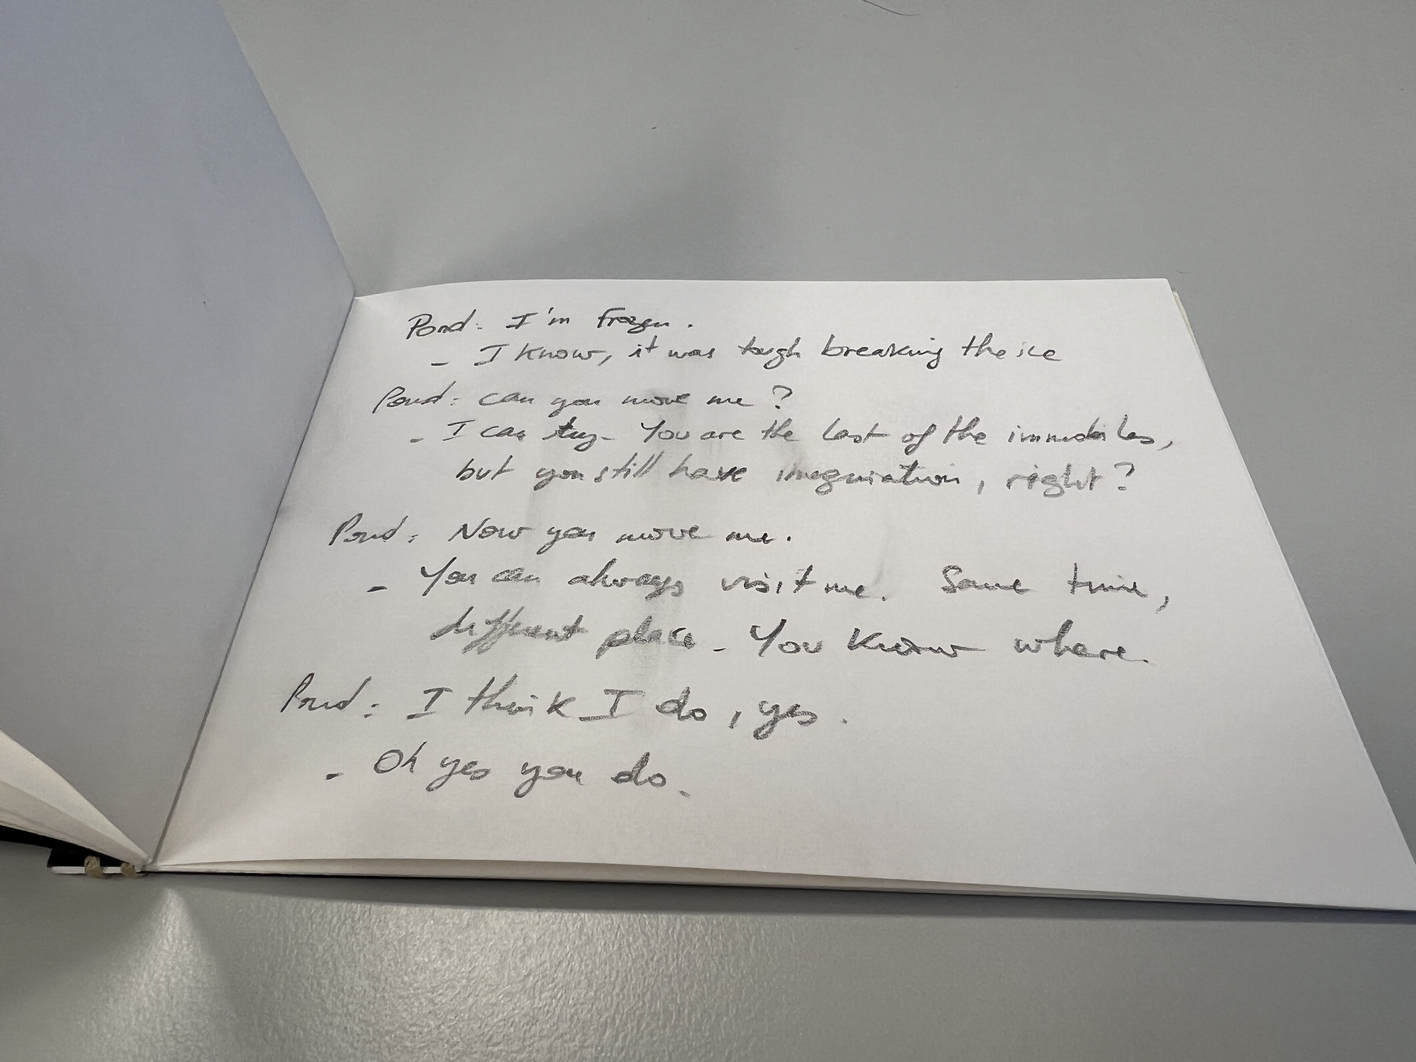 Pond: I'm Frozen.
- I know, it was tough breaking the ice
Pond: can you move me?
- I can try. You are the last of the immobiles,
but you still have imagination, right?
Pond: Now you move me.
- You can always visit me. Same time,
different place. You know where.
Pond: I think I do, yes.
- Oh yes you do.